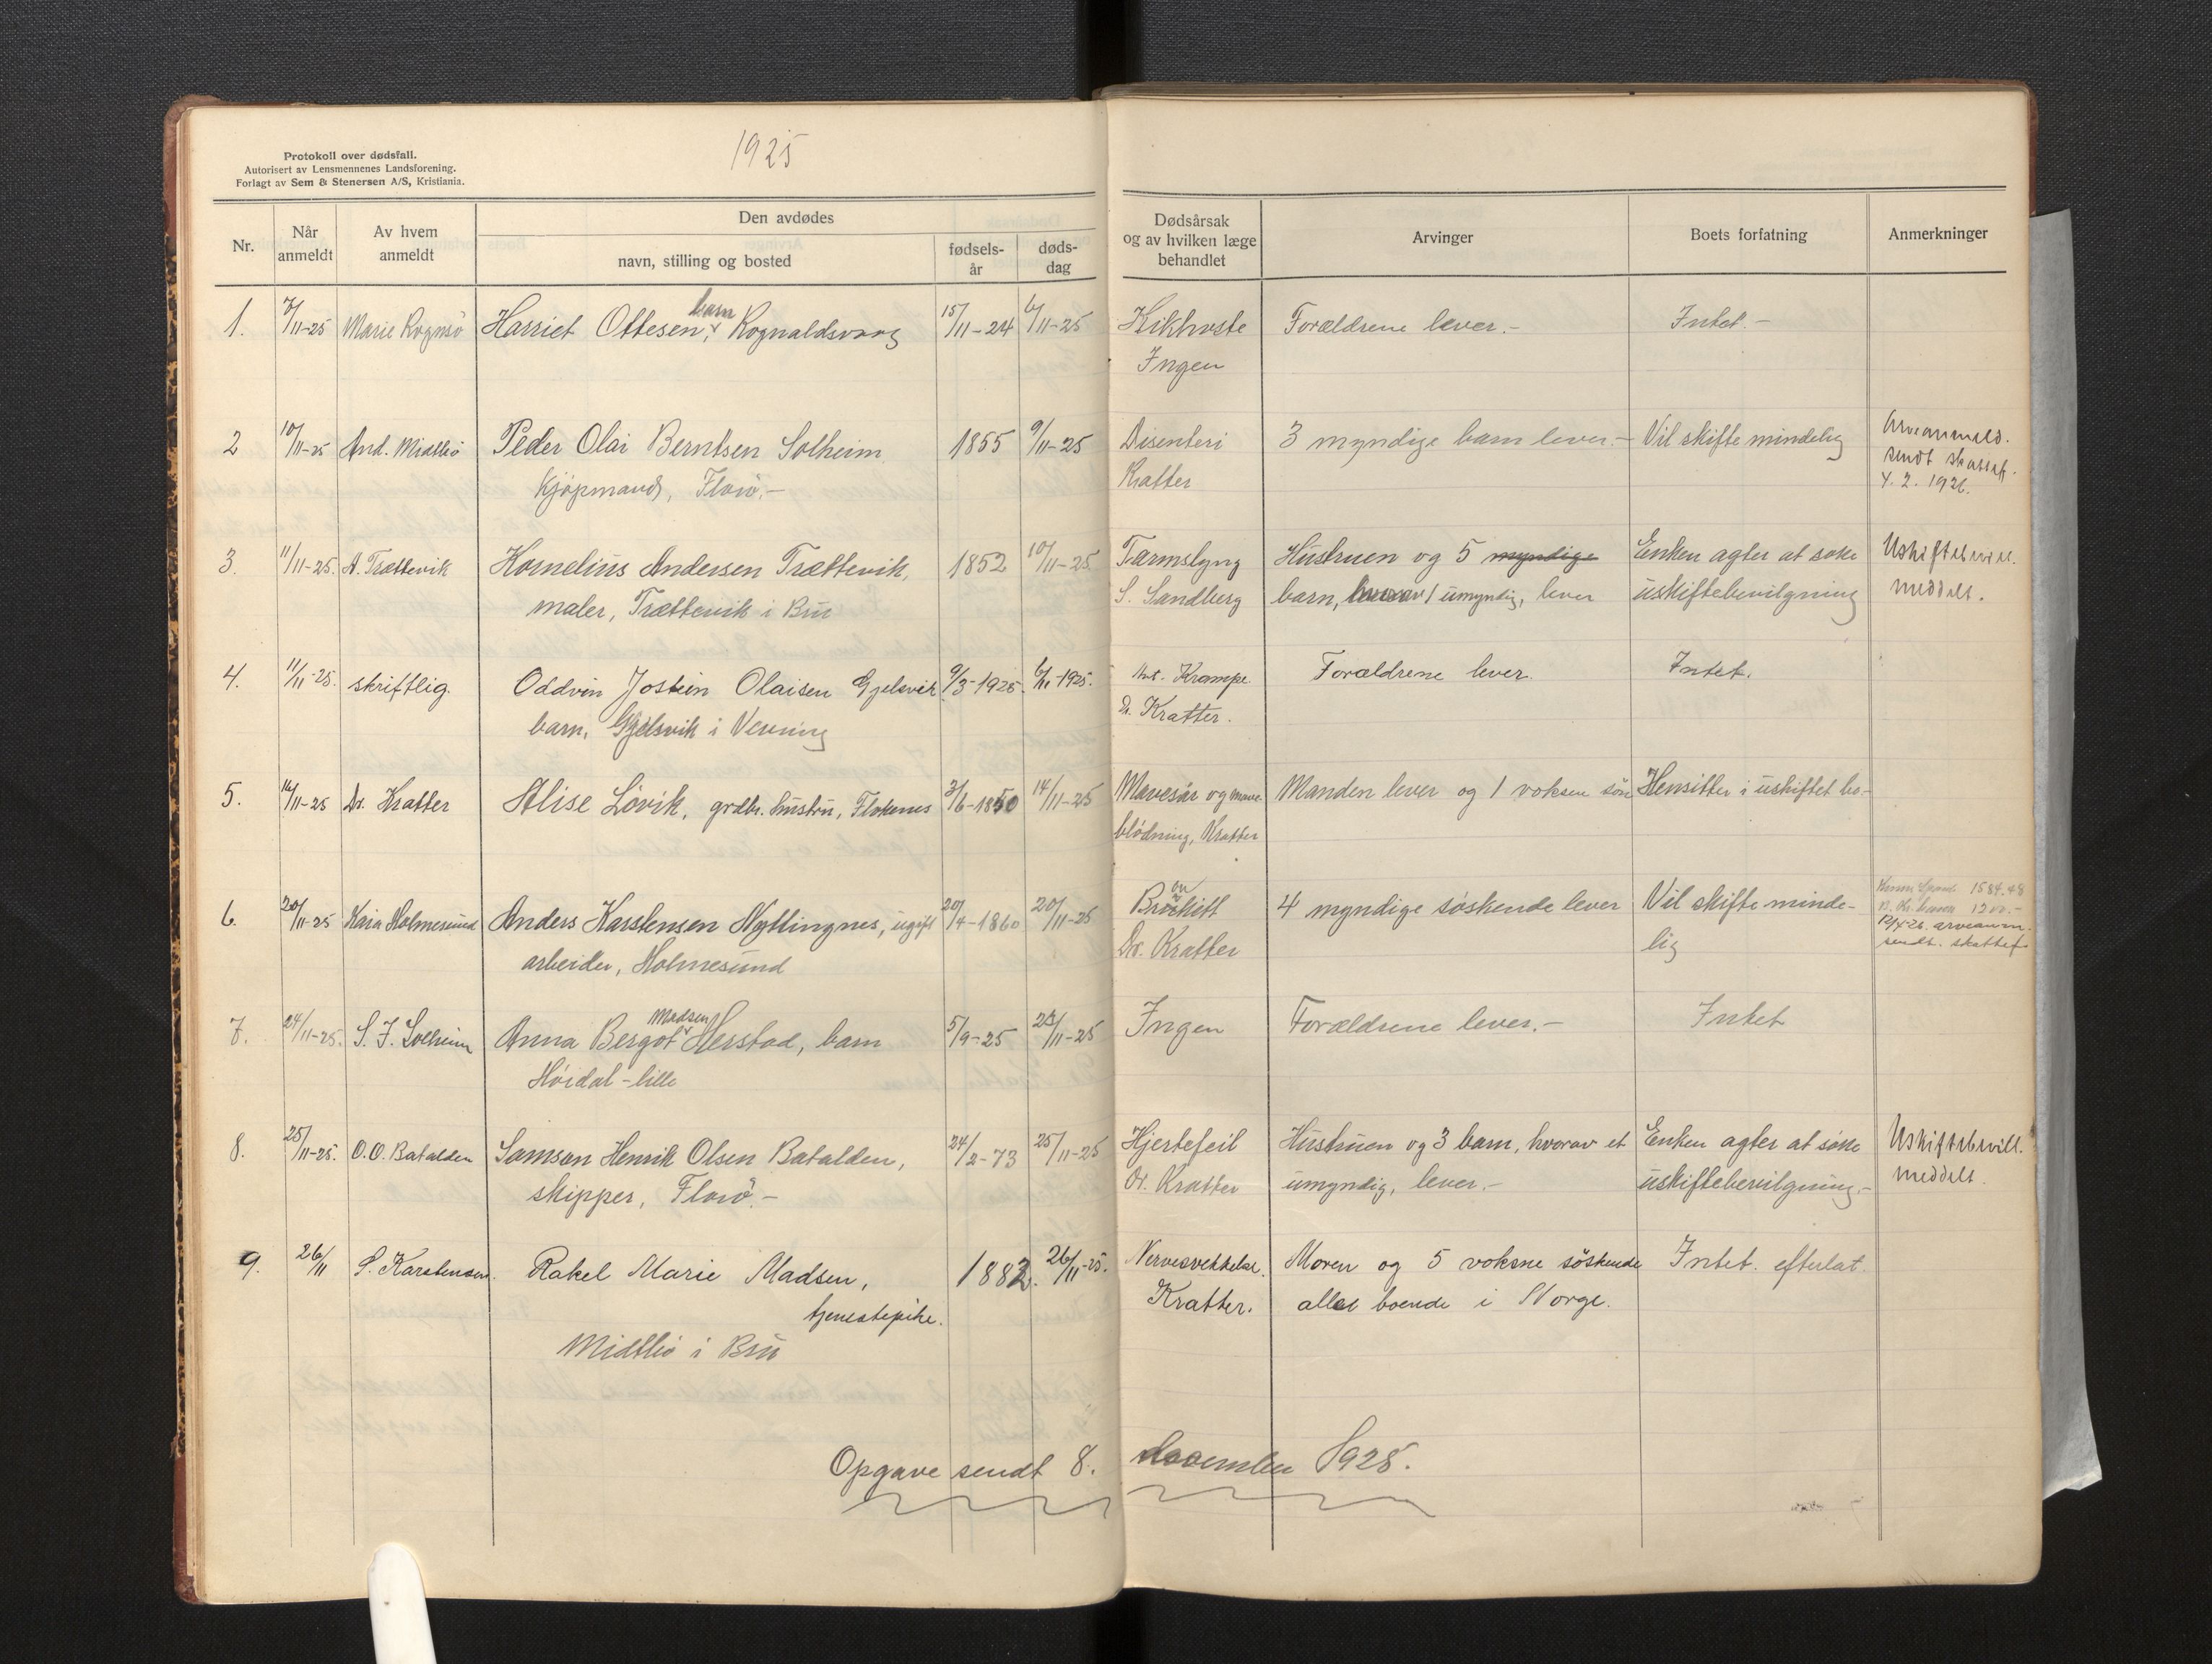 1925
Protokoll over dødsfall.
Autorisert av Lensmennenes Landsforening.
Forlagt av Sem & Stenersen A/S, Kristiania.
Nr.
Når anmeldt
Av hvem anmeldt
Den avdødes
navn, stilling og bosted
fødsels-år
døds-dag
Dødsårsak og av hvilken læge behandlet
Arvinger
Boets forfatning
Anmerkninger
1. 7/11-25 Marie Rognsö Harriet Ottesen, barn Rognaldsvaag 15/11-24 6/11-25 Kikhoste Forældrene lever.- Intet.-
Ingen
2 10/11-25 And. Midtbö Peder Olai Berntsen Solheim 1855 9/11-25 Disenteri 3 myndige barn lever.- Vil skifte mindelig Arveanmeld.
Kjøpmand, Florö.- Kratter sendt skattef.
4. 2. 1926.
3. 11/11-25. A. Trættevik Kornelius Andersen Trættevik, 1852 10/11-25 Tarmslyng Hustruen og 5 myndige Enken agter at søke Uskiftebevill.
maler, Trættevik i Bru S. Sandberg barn, hvorav 1 umyndig, lever uskiftebevilgning meddelt.
4. 11/11-25. skriftlig. Oddvin Jostein Olaisen Gjelsvik 9/3-1925. 6/11-1925. Krampe Forældrene lever. Intet.
barn, Gjelsvik i Vevring Dr. Kratter.
5. 16/11-25 Dr. Kratter Alise Lövik, grdbr. hustru, Flokenes 3/6-1850 14/11-25 Mavesår og mave- Manden lever og 1 voksen sön Hensitter i uskiftet bo-
blödning, Kratter
6. 20/11-25 Kaia Holmesund Anders Karstensen Nyttingnes, ugift 20/4-1860 20/11-25 Bronkitt 4 myndige söskende lever Vil skifte minde- 1584.48
1200.-
arbeider, Holmesund Dr. Kratter lig arveanm.
sendt. skattef.
7. 24/11-25. S. J. Solheim Anna Bergot Madsen Herstad, barn 5/9-25 23/11-25 Ingen Forældrene lever.- Intet
Höidal-lille
8. 25/11-25. O.O. Batalden Samson Henrik Olsen Batalden, 24/2-73 25/11-25 Hjertefeil Hustruen og 3 barn, hvorav et Enken agter at søke Uskiftebevill.
skipper, Florö.- Dr. Kratter umyndig, lever.- uskiftebevilgning.- meddelt.
9. 26/11 S. Karstensen. Rakel Marie Madsen, 1882. 26/11-25. Nervesvekkelse. Moren og 5 voksne söskende Intet efterlat.
tjenestepike. Kratter. alle boende i Norge.
Midtbö i Bru
Opgave sendt 8. december 1925.